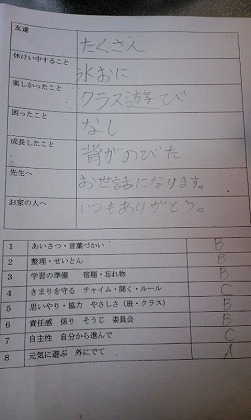 友達 たくさん
休けい中すること 氷おに
楽しかったこと クラス遊び
困ったこと なし
成長したこと 背がのびた
先生へ お世話になります。
お家の人へ いつもありがとう。
1 あいさつ・言葉づかい B
2 整理・せいとん B
3 学習の準備 宿題・忘れ物 B
4 きまりを守る チャイム・聞く・ルール C
5 思いやり・協力 やさしさ(班・クラス) B
6 責任感 係り そうじ 委員会 B
7 自主性 自分から進んで C
8 元気に遊ぶ 外にでて A